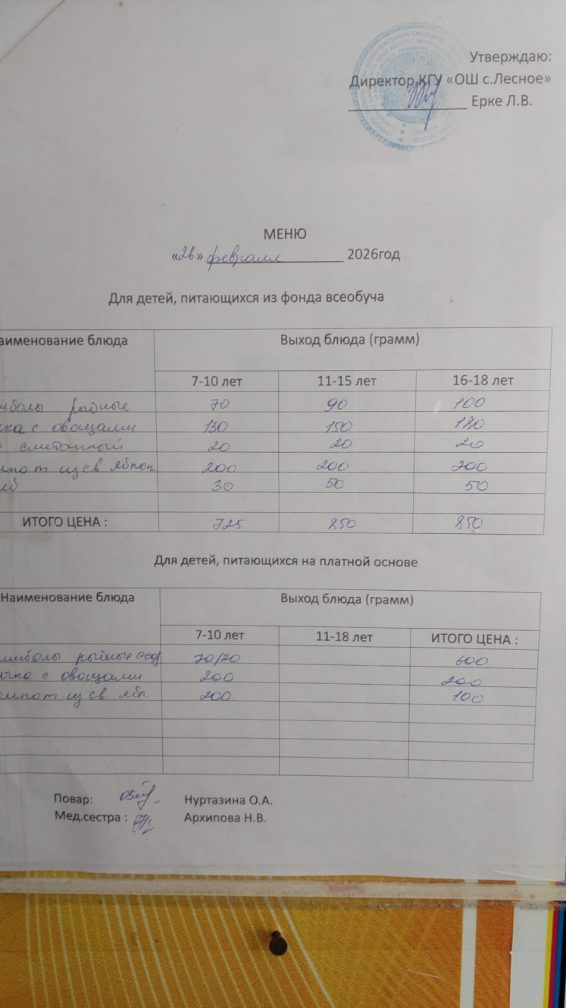 Утверждаю:
Директор КГУ «ОШ с.Лесное»
Ерке Л.В.
МЕНЮ
«26» февраля 2026год
Для детей, питающихся из фонда всеобуча
аименование блюда Выход блюда (грамм)
7-10 лет 11-15 лет 16-18 лет
мболы рыбные 70 90 100
с овощами 130 150 180
с сметанный 20 20 20
мпот из св яблок 200 200 200
еб 30 50 50
ИТОГО ЦЕНА : 725 850 850
Для детей, питающихся на платной основе
Наименование блюда Выход блюда (грамм)
7-10 лет 11-18 лет ИТОГО ЦЕНА :
мболы рыбные 70/20 600
с овощами 200 200
мпот из св. ябл. 200 100
Повар: Нуртазина О.А.
Мед.сестра : Архипова Н.В.